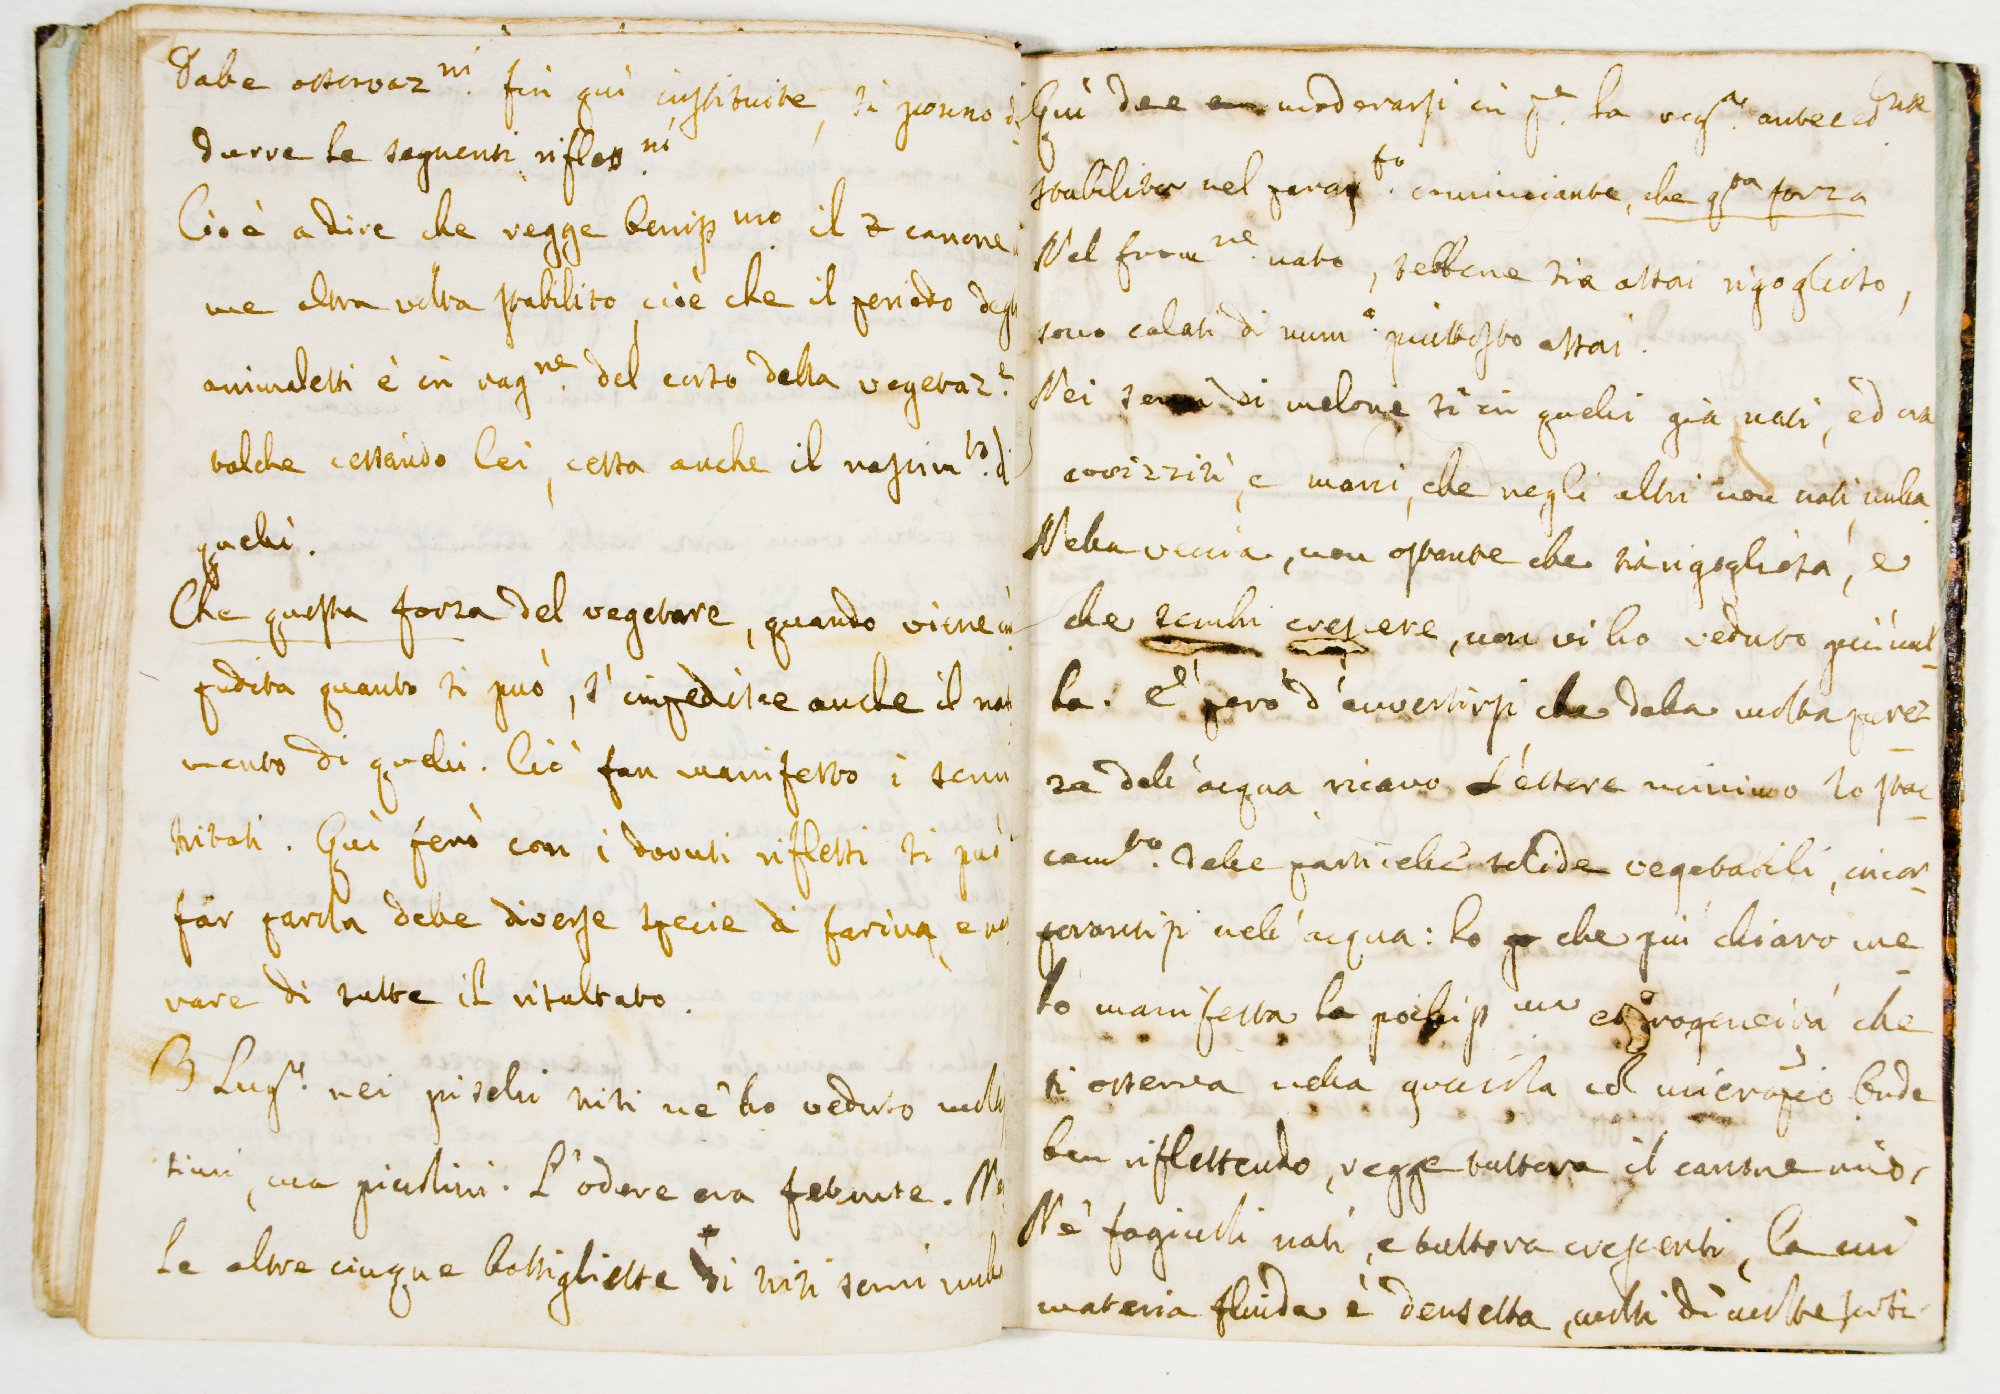 Dalle osservaz.ni fin quì instituite, si ponno
durre le seguenti rifless.ni
Cioè a dire che regge beniss.mo il 2 canone
me altra volta stabilito, cioè che il periodo degli
animaletti è in rag.ne del corso della vegetaz.e
talche cessando lei, cessa anche il nascim.to di
quelli.
Che questa forza del vegetare, quando viene im
pedita quanto si può, s'impedisce anche il nas
mento di quelli. Ciò fan manifesto i semi
tritati. Quì però con i dovuti riflessi si può
far parola delle diverse specie di farina, e
vare di tutte il risultato.
Lug.o nei piselli triti ne ho veduto molti
simi, ma piccolini. L'odore era fetente. Nel
le altre cinque bottigliette di triti semi nulla
Quì dee moderarsi in p.e la anteced.nte
stabilita nel parag.fo cominciante, che q.sta forza
Nel from.ne nato, sebbene sia assai rigoglioso,
sono calati di num.o piuttosto assai.
Nei semi di melone sì in quelli già nati, ed ora
avvizziti, e marci, che negli altri non nati, nulla
Nella veccia, non ostante che sia rigogliosa, e
che sembri crescere, non vi ho veduto più nul-
la. E' però d'avvertirsi che dalla molta purez-
za dell'acqua ricavo d'essere minimo lo stac-
cam.to delle particelle solide vegetabili, incor-
porantisi nell'acqua: lo che più chiaro me
lo manifesta la pochiss.ma eterogeneità che
si osserva nella gocciola col microscopio. Onde
ben riflettendo, regge tuttora il canone mio.
Ne' fagiuoli nati, e tuttora crescenti, la cui
materia fluida è densetta, molti di molte spezi-